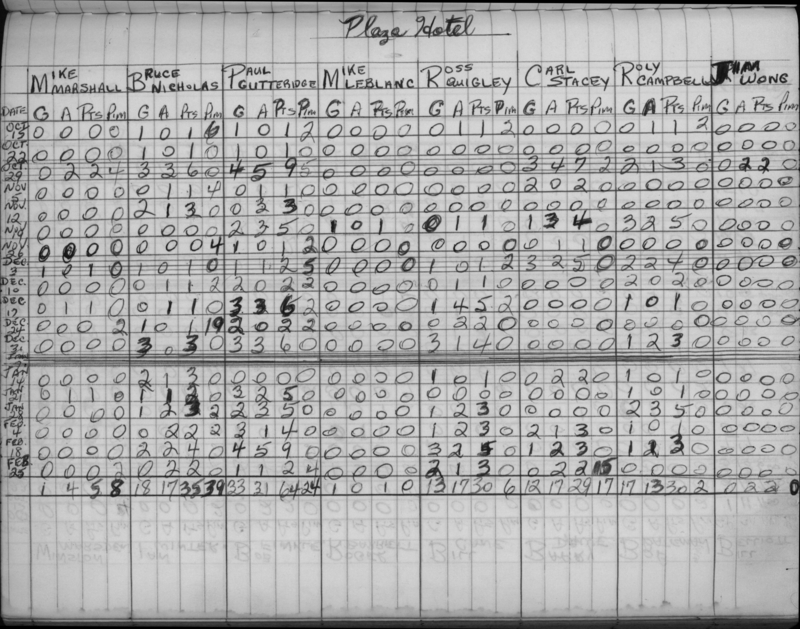 Plaza Hotel
MIKE MARSHALL BRUCE NICHOLAS PAUL GUTTERIDGE MIKE LEBLANC ROSS QUIGLEY CARL STACEY ROLY CAMPBELL WONG
DATE G A Pts Pim G A Pts Pim G A Pts Pim G A Pts Pim G A Pts Pim G A Pts Pim G A Pts Pim G A Pts Pim
OCT 15 0 0 0 0 1 0 1 6 1 0 1 2 0 0 0 0 0 1 1 2 0 0 0 0 0 1 1 2 0 0 0 0
OCT 22 0 0 0 0 1 0 1 0 1 0 1 0 0 0 0 0 0 0 0 0 0 0 0 0 0 0 0 0 0 0 0 0
OCT 29 0 2 2 4 3 3 6 0 4 5 9 0 0 0 0 0 0 0 0 3 4 7 2 2 1 3 0 0 2 2 0
NOV 0 0 0 0 0 1 1 4 0 1 1 0 0 0 0 0 0 0 0 0 2 0 2 0 0 0 0 0 0 0 0 0
NOV 12 0 0 0 0 2 1 3 0 0 3 3 0 0 0 0 0 0 0 0 0 0 0 0 0 0 0 0 0 0 0 0 0
0 0 0 0 0 0 0 0 2 3 5 0 1 0 1 0 0 1 1 0 1 3 4 0 3 2 5 0 0 0 0 0
NOV 26 0 0 0 0 0 0 0 4 1 0 1 2 0 0 0 0 0 0 0 0 0 1 1 0 0 0 0 0 0 0 0 0
DEC 3 1 0 1 0 1 0 1 0 1 1 2 5 0 0 0 0 1 0 1 2 3 2 5 0 2 2 4 0 0 0 0 0
DEC. 10 0 0 0 0 0 1 1 2 2 0 2 2 0 0 0 0 0 1 1 0 0 0 0 0 2 0 2 0 0 0 0 0
DEC 17 0 1 1 0 0 1 1 0 3 3 6 2 0 0 0 0 1 4 5 2 0 0 0 0 1 0 1 0 0 0 0 0
DEC 0 0 0 2 1 0 1 19 2 0 2 2 0 0 0 0 0 2 2 0 0 0 0 0 0 0 0 0 0 0 0 0
DEC 31 0 0 0 0 3 0 3 0 3 3 6 0 0 0 0 0 3 1 4 0 0 0 0 0 1 2 3 0 0 0 0 0
JAN 14 0 0 0 0 2 1 3 0 0 0 0 0 0 0 0 0 1 0 1 0 0 2 2 0 1 0 1 0 0 0 0 0
JAN 21 0 1 1 0 1 1 2 0 3 2 5 0 0 0 0 0 0 0 0 0 0 0 0 0 1 0 1 0 0 0 0 0
JAN 0 0 0 0 1 2 3 2 2 3 5 0 0 0 0 0 1 2 3 0 0 0 0 0 2 3 5 0 0 0 0 0
FEB. 4 0 0 0 0 0 2 2 2 3 1 4 0 0 0 0 0 1 2 3 0 2 1 3 0 1 0 1 0 0 0 0 0
FEB. 18 0 0 0 0 2 2 4 0 4 5 9 0 0 0 0 0 3 2 5 0 1 2 3 0 1 2 3 0 0 0 0 0
FEB. 25 0 0 0 2 0 2 2 0 1 1 2 4 0 0 0 0 2 1 3 0 0 2 2 15 0 0 0 0 0 0 0 0
1 4 5 8 18 17 35 39 33 31 64 24 1 0 1 0 13 17 30 6 12 17 29 17 17 13 30 2 0 2 2 0